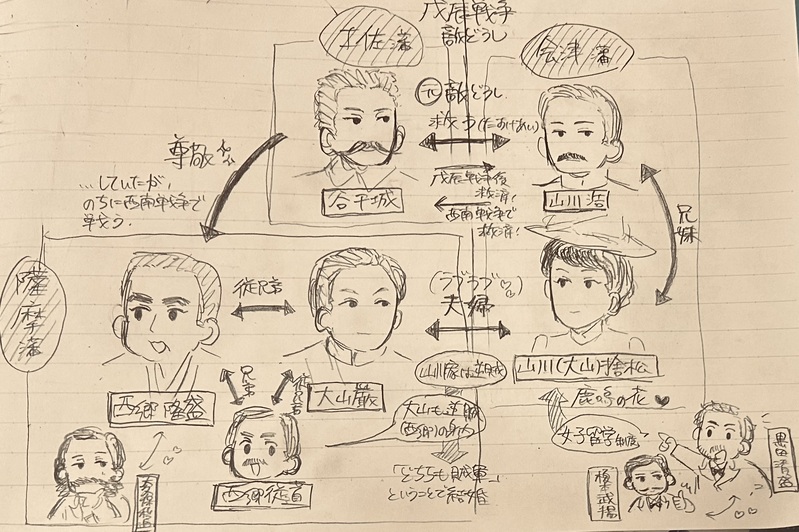 戊辰戦争
敵どうし
土佐藩
会津藩
元敵どうし
救う(たすけあい)
尊敬
…していたが、
のちに西南戦争で
戦う。
戊辰戦争後
救済!
西南戦争で
救済!
谷干城
山川浩
兄妹
薩摩藩
従兄弟
(ラブラブ♡♡)
夫婦
西郷隆盛
大山巌
山川(大山)捨松
兄弟
従兄弟
山川家は逆賊
大山も逆賊
(西郷)の身内
鹿鳴の花♥
女子留学制度
西郷従道
「どちらも賊軍」
ということで結婚
榎本武揚
黒田清隆